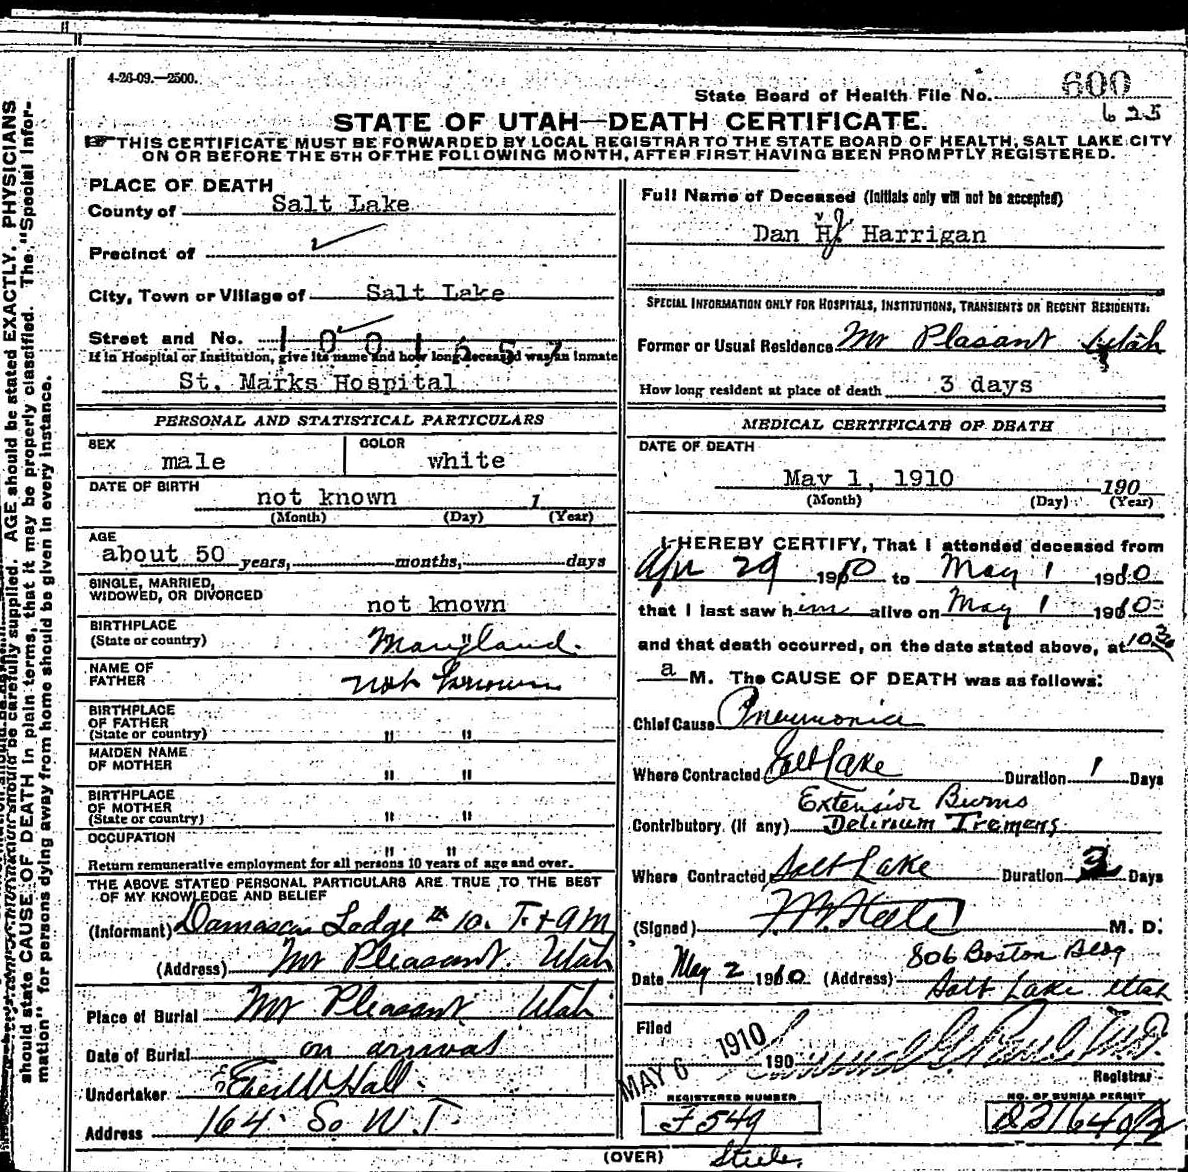 4-26-09.—2500.
State Board of Health File No. 600
625
STATE OF UTAH—DEATH CERTIFICATE.
THIS CERTIFICATE MUST BE FORWARDED BY LOCAL REGISTRAR TO THE STATE BOARD OF HEALTH, SALT LAKE CITY
ON OR BEFORE THE 5TH OF THE FOLLOWING MONTH, AFTER FIRST HAVING BEEN PROMPTLY REGISTERED.
PLACE OF DEATH
County of Salt Lake
Precinct of
City, Town or Village of Salt Lake
Street and No.
1001657
If in Hospital or Institution, give its name and how long deceased was an inmate
St. Marks Hospital
PERSONAL AND STATISTICAL PARTICULARS
SEX male
COLOR white
DATE OF BIRTH
not known 1
(Month) (Day) (Year)
AGE
about 50 years, months, days
SINGLE, MARRIED,
WIDOWED, OR DIVORCED not known
BIRTHPLACE
(State or country) Maryland.
NAME OF
FATHER not known
BIRTHPLACE
OF FATHER
(State or country) " "
MAIDEN NAME
OF MOTHER " "
BIRTHPLACE
OF MOTHER
(State or country) " "
OCCUPATION " "
Return remunerative employment for all persons 10 years of age and over.
THE ABOVE STATED PERSONAL PARTICULARS ARE TRUE TO THE BEST
OF MY KNOWLEDGE AND BELIEF
(Informant) Damascus Lodge # 10. F & A M
(Address) Mt Pleasant. Utah
Place of Burial Mt Pleasant Utah
Date of Burial on arrival
Undertaker Eber W Hall
Address 164 So W. T.
Full Name of Deceased (Initials only will not be accepted)
Dan H J. Harrigan
SPECIAL INFORMATION ONLY FOR HOSPITALS, INSTITUTIONS, TRANSIENTS OR RECENT RESIDENTS:
Former or Usual Residence Mt Plasant Utah
How long resident at place of death 3 days
MEDICAL CERTIFICATE OF DEATH
DATE OF DEATH
May 1, 1910 190
(Month) (Day) (Year)
I HEREBY CERTIFY, That I attended deceased from
Apr 29 1910 to May 1 1910
that I last saw him alive on May 1 1910
and that death occurred, on the date stated above, at 10 30
a M. The CAUSE OF DEATH was as follows:
Chief Cause Pneumonia
Where Contracted Salt Lake Duration 1 Days
Extensive Burns
Contributory (if any) Delirium Tremens
Where Contracted Salt Lake Duration 3 Days
(Signed) M. D.
Date May 2 1910 (Address) 806 Boston Bldg
Salt Lake Utah
Filed MAY 6 1910 190
Registrar
REGISTERED NUMBER
F 549
NO. OF BURIAL PERMIT
(OVER)
Steele